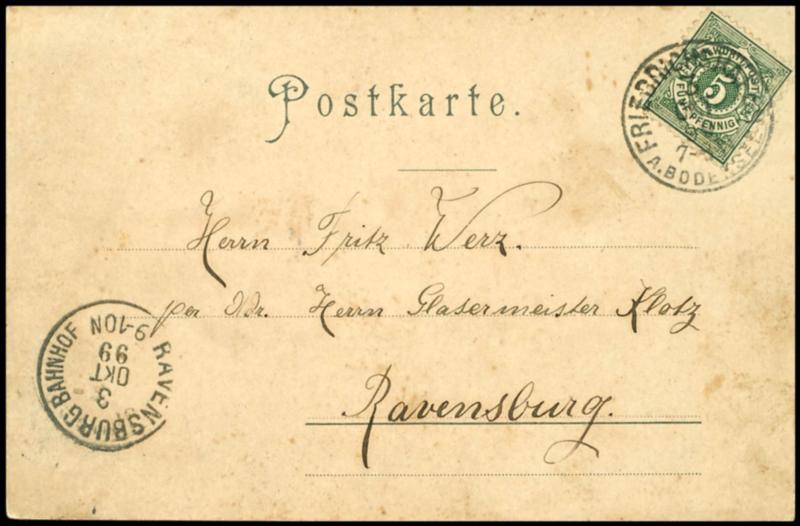 Postkarte.
FÜNF PFENNIG
5
A. BODENSEE
7-
Herrn Fritz Werz.
per Adr. Herrn Glasermeister Klotz
Ravensburg.
RAVENSBURG BAHNHOF
3
OKT
99
9-10N